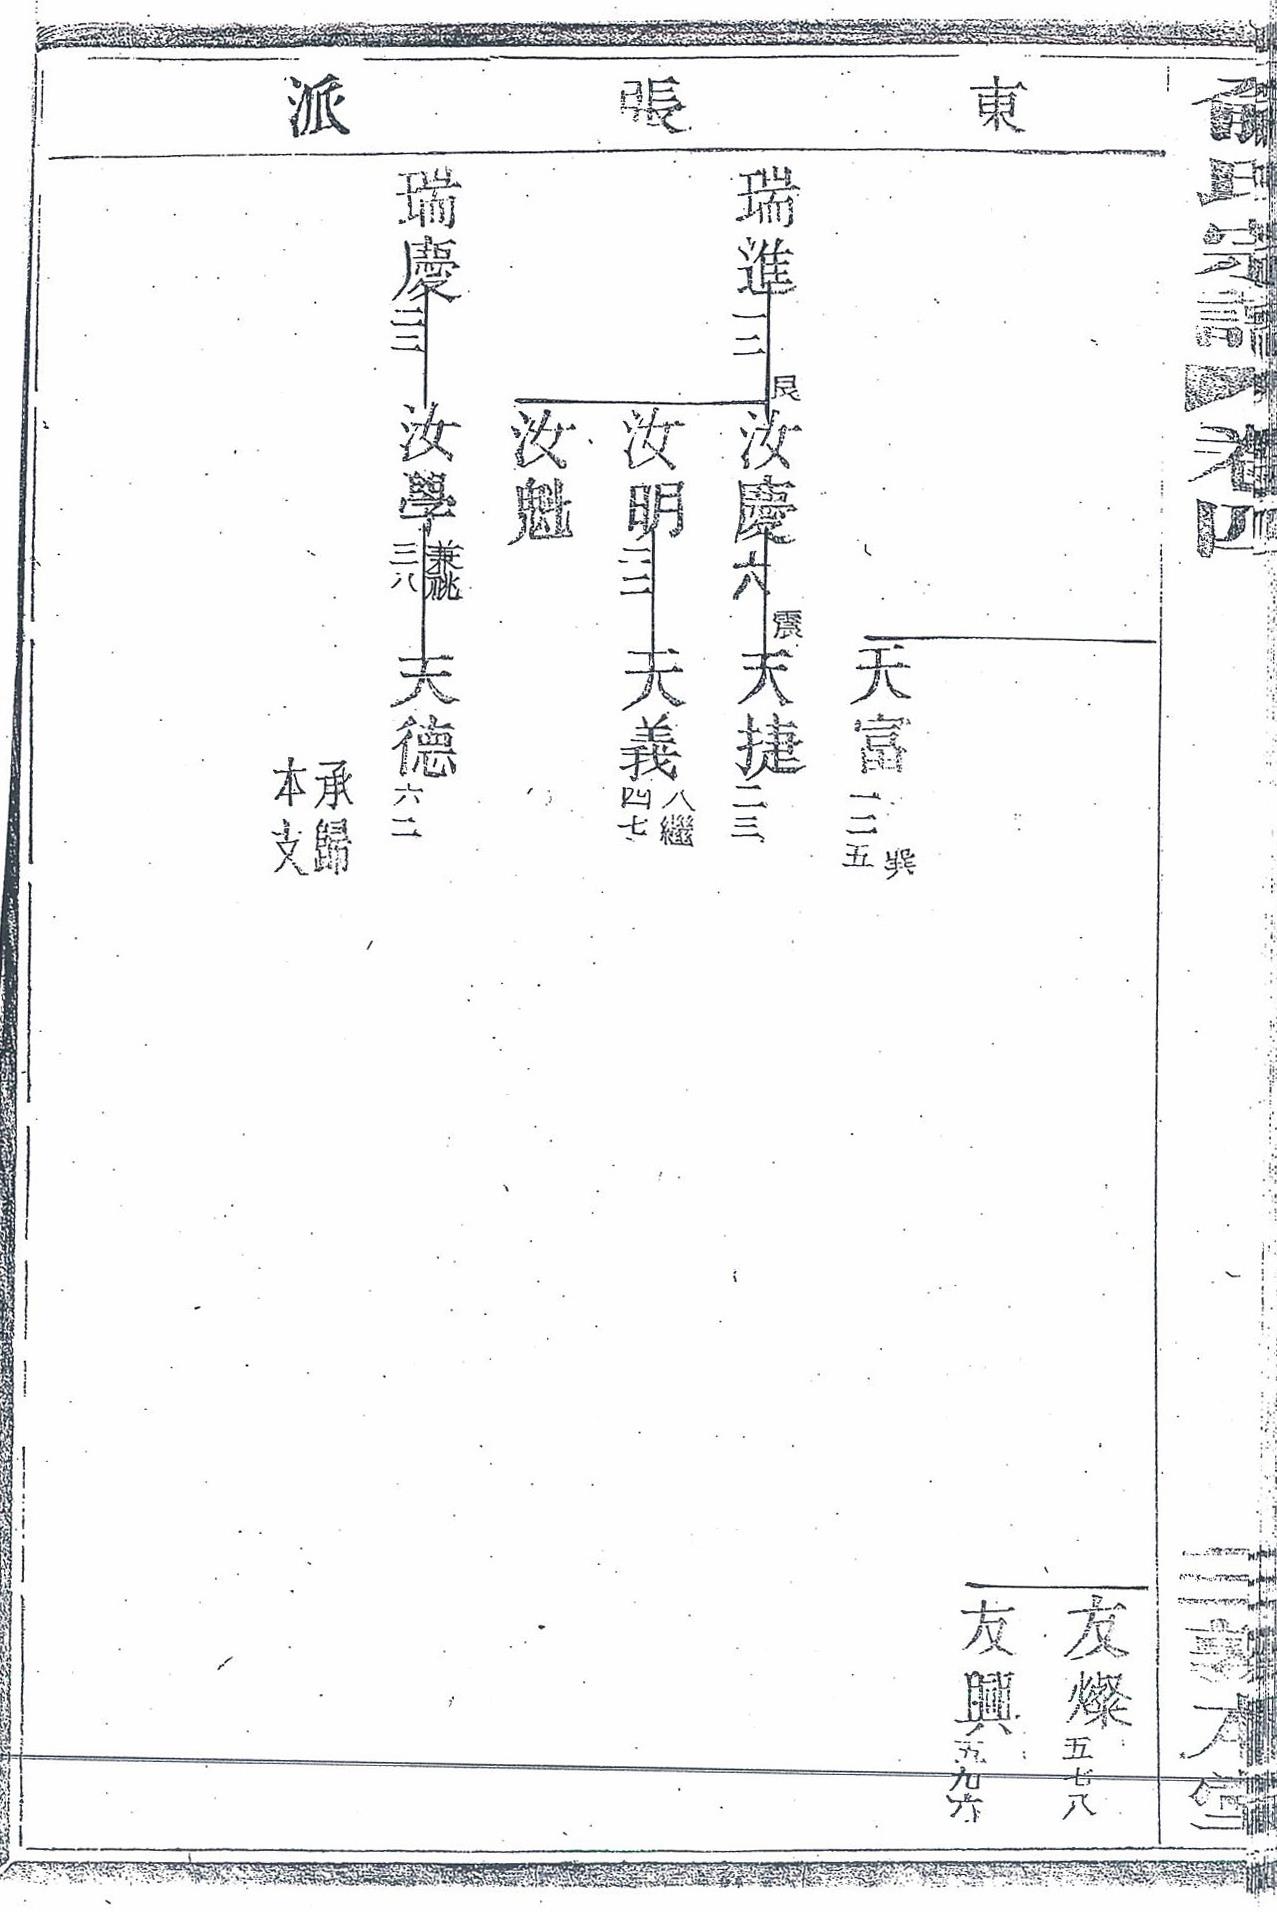 俞氏宗譜 卷四
三 敦本堂
東張派
友燦 五七八
友興 五九六
天富 一二五 巽
瑞進 一二 艮
汝慶 六 震
天捷 二三
汝明 二二
天義 四七 八繼
汝魁
瑞慶 二三
汝學 三八 兼祧
天德 六二
承歸
本支